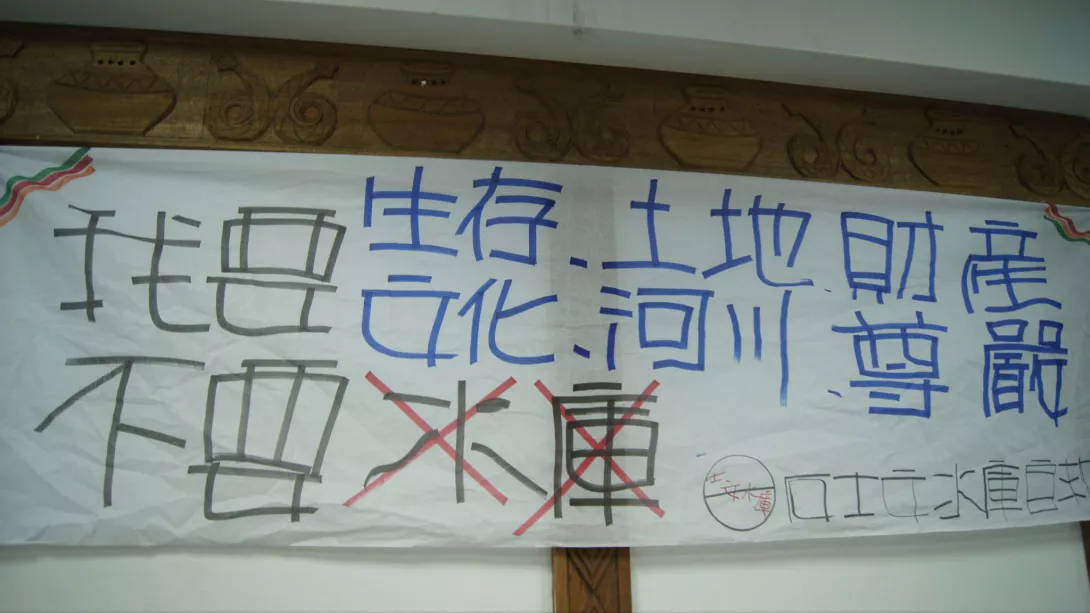 我要 生存、土地、財產
文化、河川、尊嚴
不要水庫
士文水庫
反士文水庫